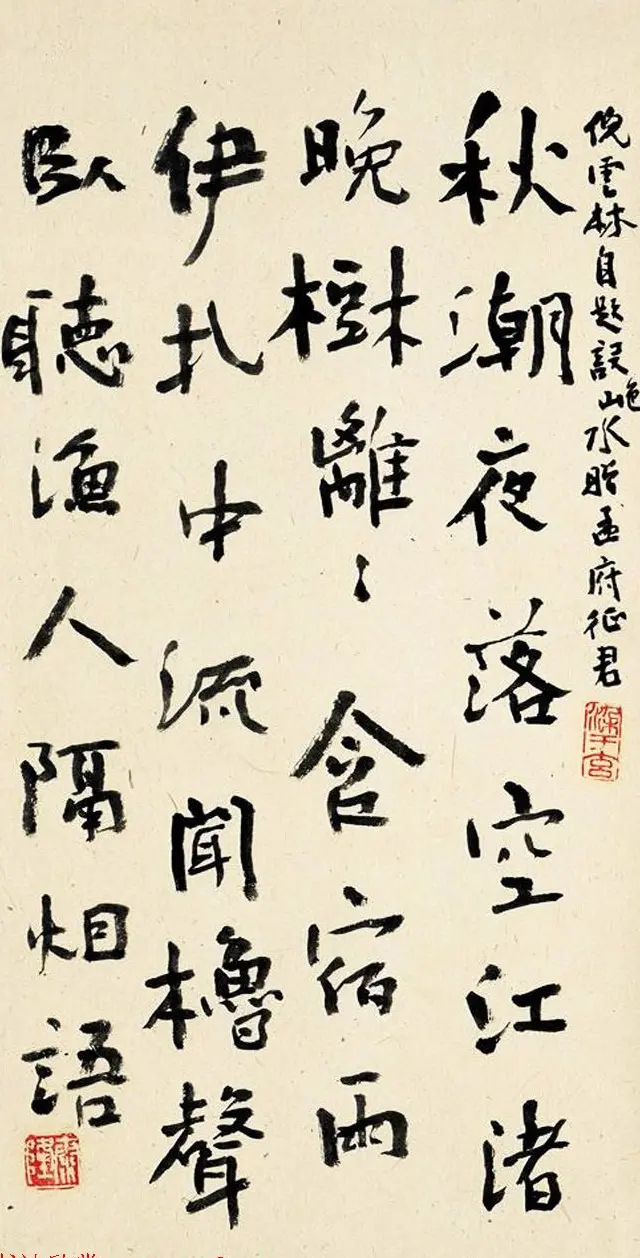 倪雲林自題設色山水贈孟府征君
秋潮夜落空江渚
晚樹離〻含宿雨
伊扎中流聞櫓聲
臥聽漁人隔烟語